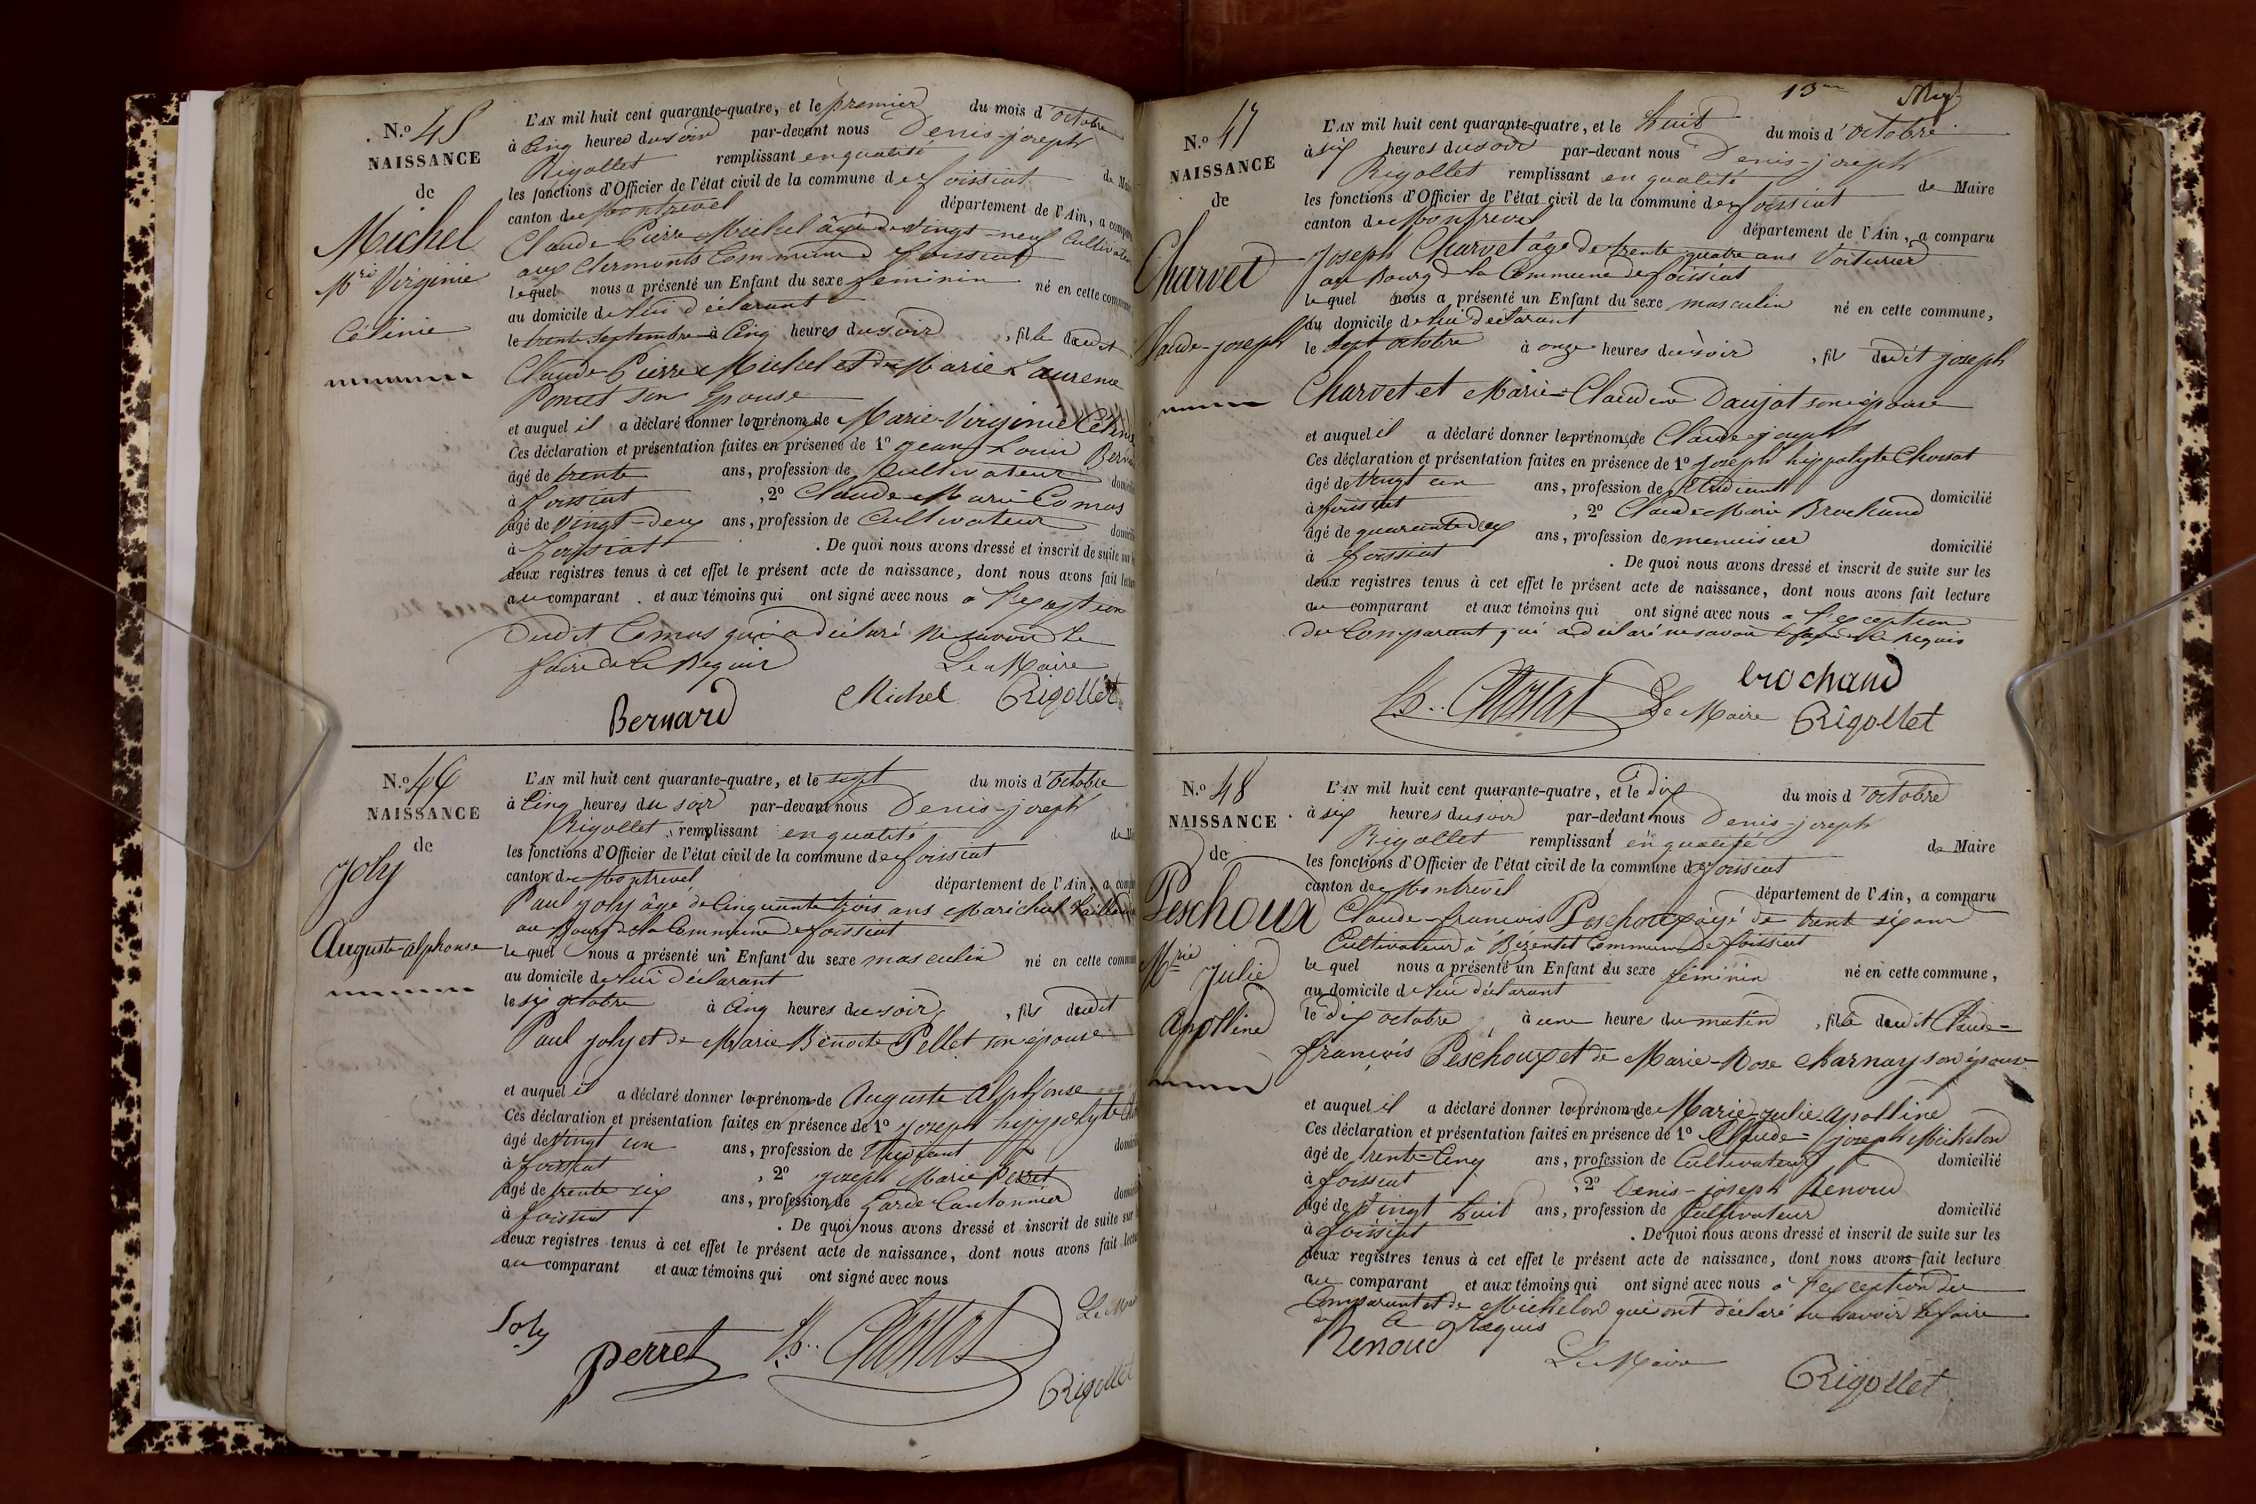 N.º 45
NAISSANCE
de
Michel
Mrie Virginie
Célinie
L'AN mil huit cent quarante-quatre, et le premier du mois d'octobre
à Cinq heures du soir par-devant nous Denis-joseph
Rigollet remplissant en qualité de Maire
les fonctions d'Officier de l'état civil de la commune de foissiat
canton de Montrevel département de l'Ain, a comparu
Claude Pierre Michel âgé de vingt-neuf Cultivateur
aux Clermonts Commune de foissiat
lequel nous a présenté un Enfant du sexe féminin né en cette commune
au domicile de lui déclarant
le trente septembre à Cinq heures du soir, fille dudit
Claude Pierre Michel et de Marie Laurence
son Epouse
et auquel il a déclaré donner les prénoms de Marie-Virginie Célinie
Ces déclaration et présentation faites en présence de 1º jean Louis Bernard
âgé de trente ans, profession de Cultivateur domicilié
à foissiat, 2º Claude Marie Comas
âgé de Vingt-deux ans, profession de Cultivateur domicilié
à foissiat. De quoi nous avons dressé et inscrit de suite sur les
deux registres tenus à cet effet le présent acte de naissance, dont nous avons fait lecture
au comparant et aux témoins qui ont signé avec nous a l'exception
dudit Comas qui a déclaré ne savoir le
faire de ce Requis
Le Maire
Bernard Michel Rigollet
N.º 46
NAISSANCE
de
Joly
Auguste-alphonse
L'AN mil huit cent quarante-quatre, et le sept du mois d'octobre
à Cinq heures du soir par-devant nous Denis-joseph
Rigollet remplissant en qualité de Maire
les fonctions d'Officier de l'état civil de la commune de foissiat
canton de Montrevel département de l'Ain, a comparu
Paul joly âgé de Cinquante trois ans Maréchal
au Bourg de la Commune de foissiat
lequel nous a présenté un Enfant du sexe masculin né en cette commune
au domicile de lui déclarant
le six octobre à Cinq heures du soir, fils dudit
Paul joly et de Marie Benoite Pellet son épouse
et auquel il a déclaré donner les prénoms de Auguste Alphonse
Ces déclaration et présentation faites en présence de 1º joseph hippolyte
âgé de Vingt un ans, profession de Etudiant domicilié
à foissiat, 2º joseph Marie Perret
âgé de trente six ans, profession de Garde Cantonnier domicilié
à foissiat. De quoi nous avons dressé et inscrit de suite sur
deux registres tenus à cet effet le présent acte de naissance, dont nous avons fait lecture
au comparant et aux témoins qui ont signé avec nous
Joly Perret Chossat Le Maire
Rigollet
N.º 47
NAISSANCE
de
Charvet
Claude-joseph
L'AN mil huit cent quarante-quatre, et le huit du mois d'octobre
à six heures du soir par-devant nous Denis-joseph
Rigollet remplissant en qualité de Maire
les fonctions d'Officier de l'état civil de la commune de foissiat
canton de Montrevel département de l'Ain, a comparu
Joseph Charvet âgé de trente quatre ans Voiturier
au Bourg de la Commune de foissiat
lequel nous a présenté un Enfant du sexe masculin né en cette commune,
au domicile de lui déclarant
le sept octobre à onze heures du soir, fils dudit joseph
Charvet et Marie-Claudine Daujat son épouse
et auquel il a déclaré donner les prénoms de Claude-joseph
Ces déclaration et présentation faites en présence de 1º Joseph hippolyte Chossat
âgé de Vingt un ans, profession de Etudiant domicilié
à foissiat, 2º Claude-Marie Brochand
âgé de quarante deux ans, profession de menuisier domicilié
à foissiat. De quoi nous avons dressé et inscrit de suite sur les
deux registres tenus à cet effet le présent acte de naissance, dont nous avons fait lecture
au comparant et aux témoins qui ont signé avec nous a l'exception
du Comparant qui a déclaré ne savoir le faire de ce Requis
Chossat Le Maire brochand Rigollet
N.º 48
NAISSANCE
de
Peschoux
Mrie Julie
Apolline
L'AN mil huit cent quarante-quatre, et le dix du mois d'octobre
à six heures du soir par-devant nous Denis-joseph
Rigollet remplissant en qualité de Maire
les fonctions d'Officier de l'état civil de la commune de foissiat
canton de Montrevel département de l'Ain, a comparu
Claude-françois Peschoux âgé de trent six ans
Cultivateur à Bézentet Commune de foissiat
lequel nous a présenté un Enfant du sexe féminin né en cette commune,
au domicile de lui déclarant
le dix octobre, à une heure du matin, fille dudit Claude-
françois Peschoux et de Marie-Rose Charnay son épouse
et auquel il a déclaré donner les prénoms de Marie-Julie-Apolline
Ces déclaration et présentation faites en présence de 1º Claude-joseph Michelon
âgé de trente-Cinq ans, profession de Cultivateur domicilié
à foissiat, 2º Denis-joseph Renoud
âgé de Vingt huit ans, profession de Cultivateur domicilié
à foissiat. De quoi nous avons dressé et inscrit de suite sur les
deux registres tenus à cet effet le présent acte de naissance, dont nous avons fait lecture
au comparant et aux témoins qui ont signé avec nous a l'exception du
Comparant et de Michelon qui ont déclaré ne savoir le faire
de ce Requis
Renoud Le Maire Rigollet